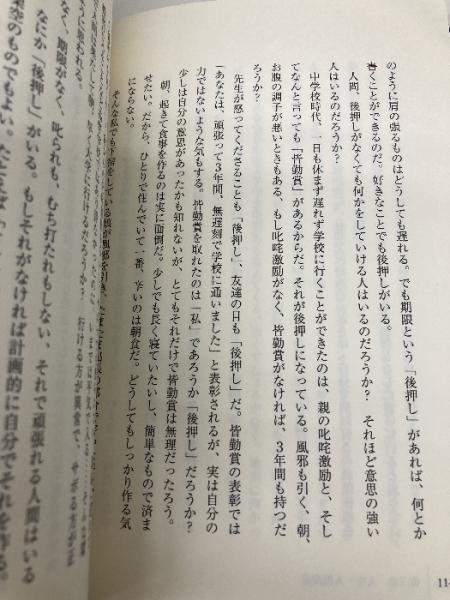 のように肩の張るものはどうしても遅れる。でも期限という「後押し」があれば、何とか
書くことができるのだ。好きなことでも後押しがいる。
人間、後押しがなくても何かをしていける人はいるのだろうか？　それほど意思の強い
人はいるのだろうか？
中学校時代、一日も休まず遅れず学校に行くことができたのは、親の叱咤激励と、そし
てなんと言っても「皆勤賞」があるからだ。それが後押しになっている。風邪も引く、朝、
お腹の調子が悪いときもある、もし叱咤激励がなく、皆勤賞がなければ、３年間も持つだ
ろうか？
先生が怒ってくださることも「後押し」、友達の目も「後押し」だ。皆勤賞の表彰では
「あなたは、頑張って３年間、無遅刻で学校に通いました」と表彰されるが、実は自分の
力ではないような気もする。皆勤賞を取れたのは「私」であろうか「後押し」であろうか？
少しは自分の意思があったかも知れないが、とてもそれだけで皆勤賞は無理だったろう。
朝、起きて食事を作るのは実に面倒だ。少しでも長く寝ていたいし、簡単なもので済ま
せたい。だから、ひとりで住んでいて一番、辛いのは朝食だ。どうしてもしっかり作る気
にならない。
そんな私でも
が風邪を引き、
行ける方が異常で、サボる方が
に思われる。
なく、期限がなく、叱られも、むち打たれもしない、それで頑張れる人間はいる
なにか「後押し」がいる。もしそれがなければ計画的に自分でそれを作る。
架空のものでもよい。たとえば